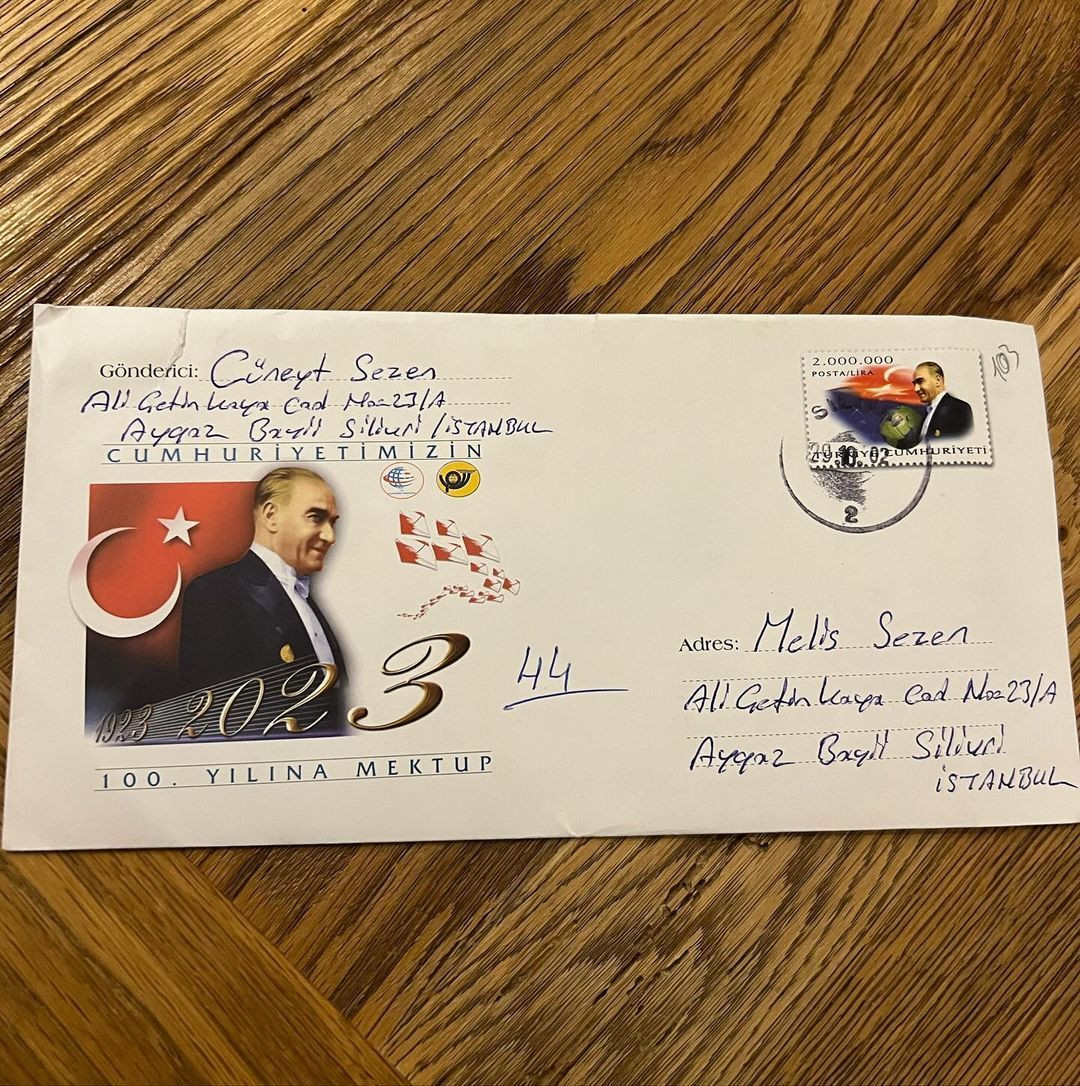 Gönderici: Cüneyt Sezen
Ali Çetin Kaya Cad No=23/A
Aygaz Bayii Silivri / İSTANBUL
CUMHURİYETİMİZİN
1923 2023
100. YILINA MEKTUP
44
2.000.000
POSTA/LİRA
TÜRKİYE CUMHURİYETİ
S
29.10.02
2
103
Adres: Melis Sezen
Ali Çetin Kaya Cad No=23/A
Aygaz Bayii Silivri
İSTANBUL